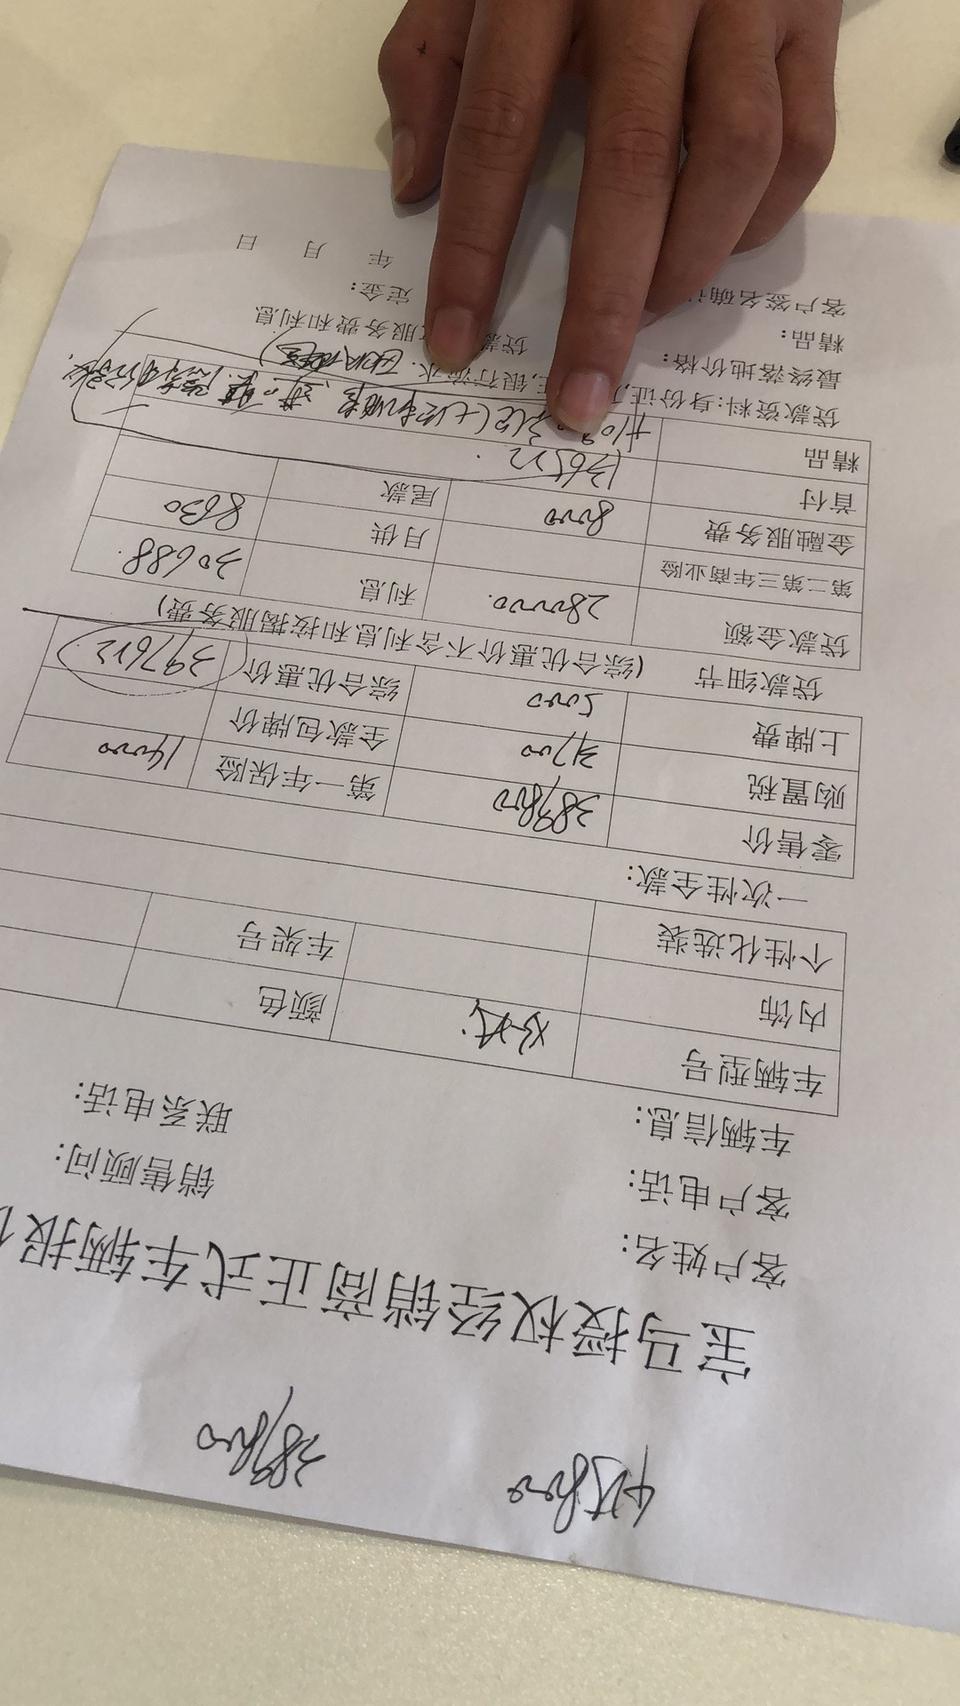 389800
宝马授权经销商正式车辆报
客户姓名: 销售顾问:
客户电话: 联系电话:
车辆信息:
车辆型号 颜色
内饰
个性化选装 车架号
一次性全款:
零售价 389800 第一年保险 14000
购置税 31700 全款包牌价
上牌费 5000 综合优惠价 397612
贷款细节 (综合优惠价不含利息和按揭服务费)
贷款金额 280000. 利息 30688.
第二第三年商业险
金融服务费 8000 月供 8630
首付 136512. 尾款
精品
贷款资料:身份证, 银行流水.
最终落地价格: 服务费和利息
精品: 定金:
客户签名确 年 月 日